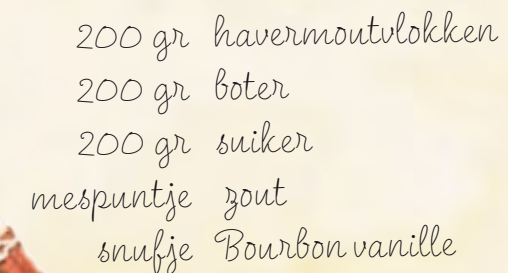 200 gr havermoutvlokken
200 gr boter
200 gr suiker
mespuntje zout
snufje Bourbon vanille